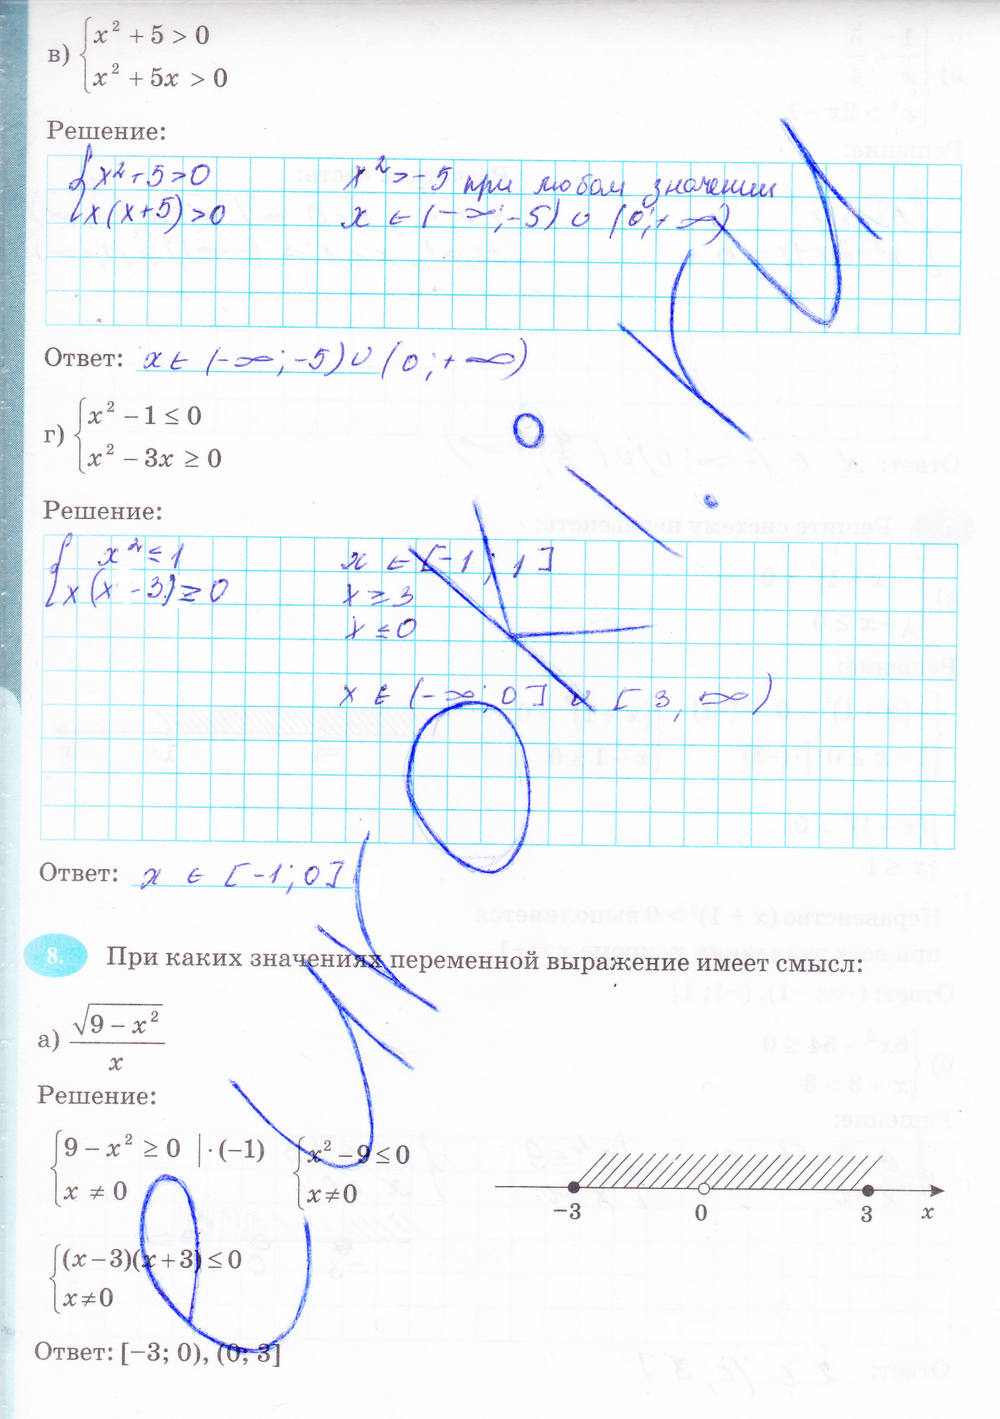 в) { x² + 5 > 0
x² + 5x > 0
Решение:
{ x² + 5 > 0    x² > -5 при любом значении
x(x+5) > 0    x ∈ (-∞; -5) ∪ (0; +∞)
Ответ: x ∈ (-∞; -5) ∪ (0; +∞)
г) { x² − 1 ≤ 0
x² − 3x ≥ 0
Решение:
{ x² ≤ 1    x ∈ [-1; 1]
x(x - 3) ≥ 0    x ≥ 3
x ≤ 0
x ∈ (-∞; 0] ∪ [3, ∞)
Ответ: x ∈ [-1; 0]
8. При каких значениях переменной выражение имеет смысл:
а) √(9 − x²) / x
Решение:
{ 9 − x² ≥ 0 | · (−1)    { x² − 9 ≤ 0
x ≠ 0    x ≠ 0
−3 0 3 x
{ (x − 3)(x + 3) ≤ 0
x ≠ 0
Ответ: [−3; 0), (0; 3]